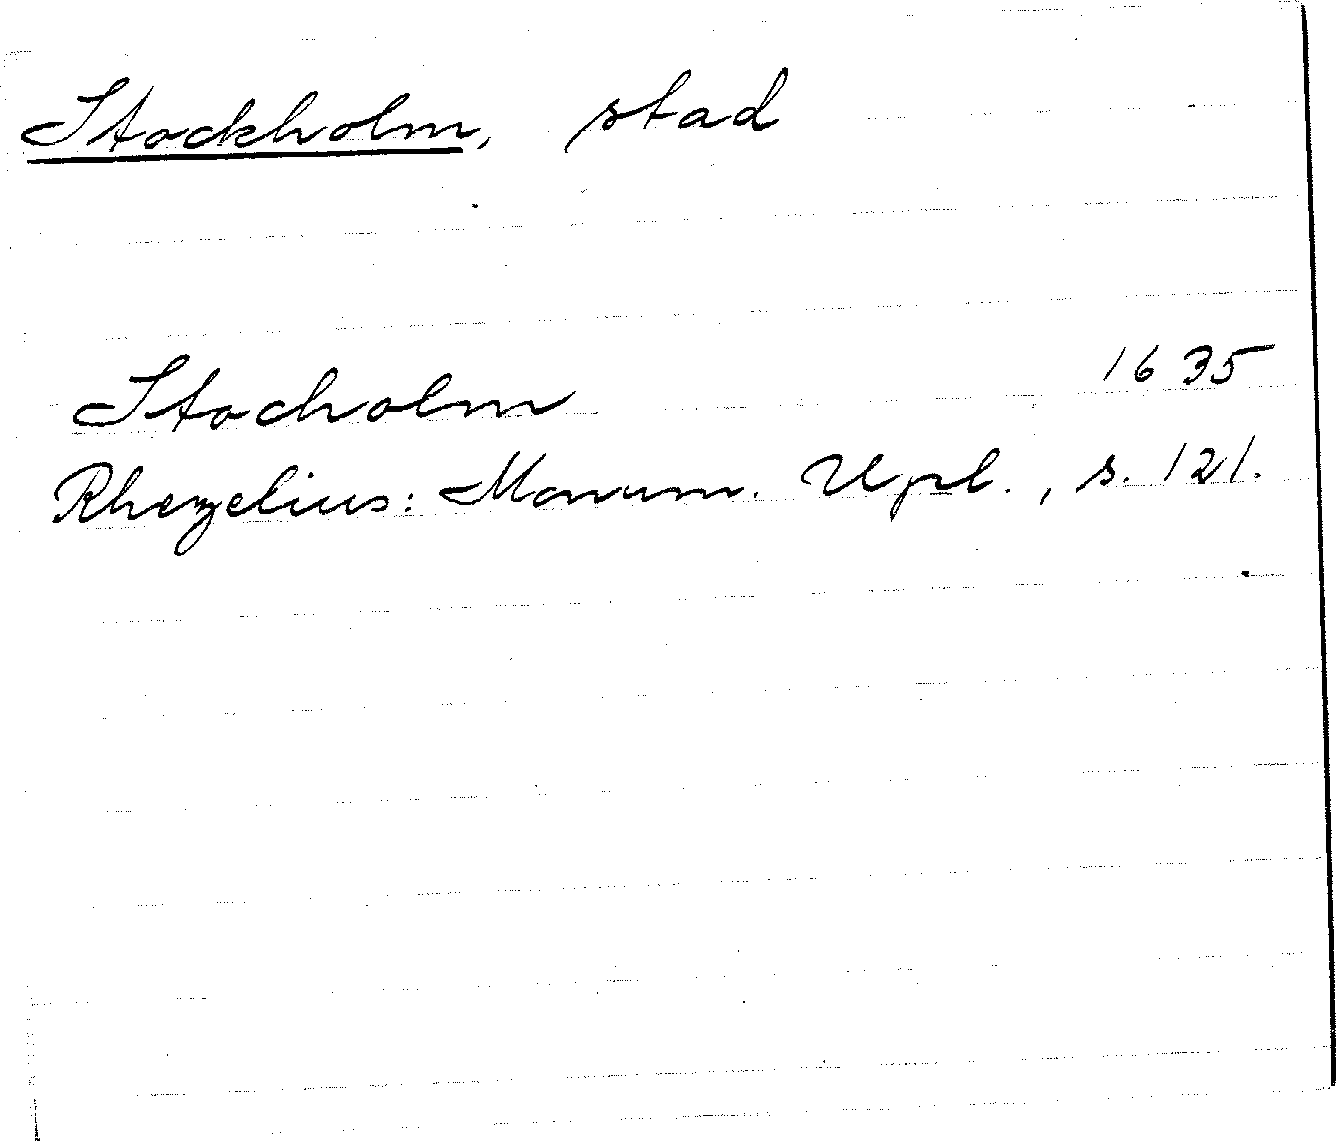 Stockholm, stad
Stocholm 1635
Rhezelius: Monum. Upl., s. 121.